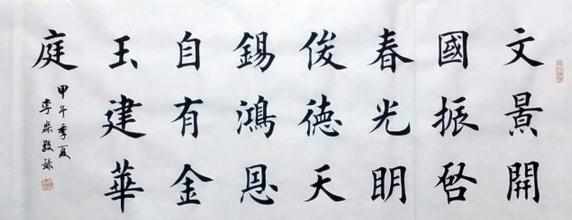 文景開
國振啓
春光明
俊德天
錫鴻恩
自有金
玉建華
庭
甲午季夏
李